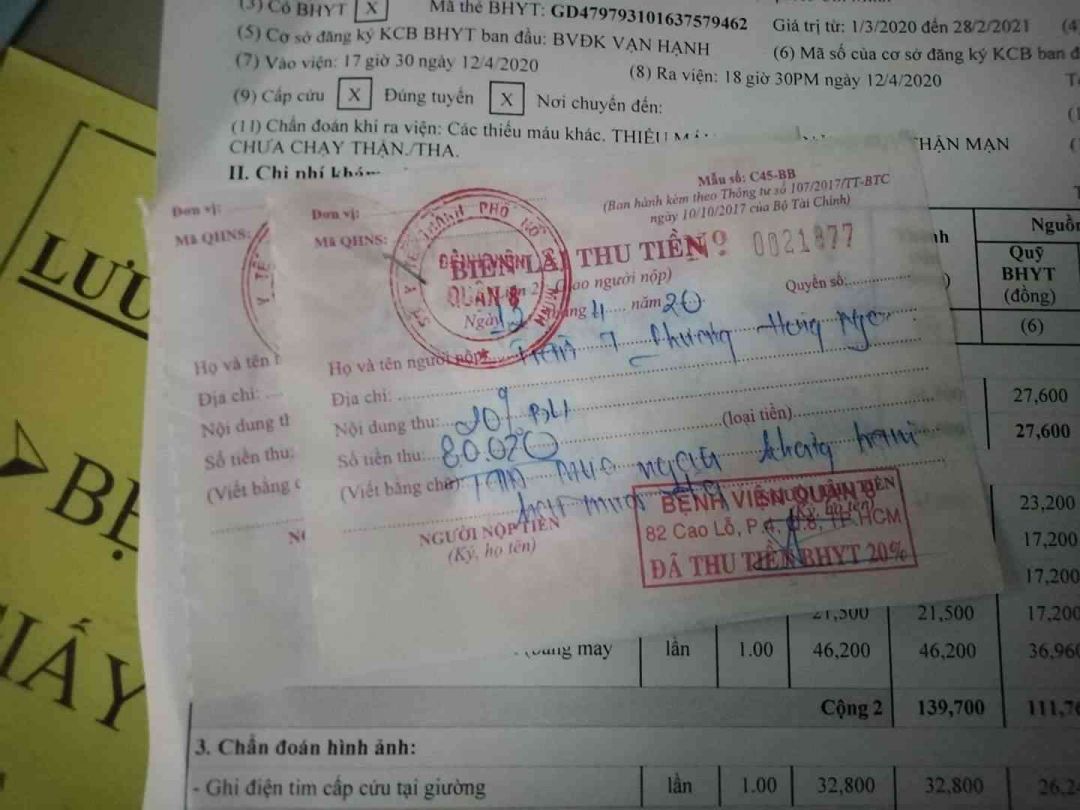 (3) Có BHYT X Mã thẻ BHYT: GD479793101637579462 Giá trị từ: 1/3/2020 đến 28/2/2021 (4)
(5) Cơ sở đăng ký KCB BHYT ban đầu: BVĐK VẠN HẠNH (6) Mã số của cơ sở đăng ký KCB ban
(7) Vào viện: 17 giờ 30 ngày 12/4/2020 (8) Ra viện: 18 giờ 30PM ngày 12/4/2020
(9) Cấp cứu X Đúng tuyến X Nơi chuyển đến:
(11) Chẩn đoán khi ra viện: Các thiếu máu khác. THIẾU
CHƯA CHẠY THẬN./THA. THẬN MẠN
II. Chi phí
LƯU
BỆ
GIẤY
Đơn vị:
Mã QHNS:
Y TẾ
Họ và tên
Địa chỉ:
Nội dung
Số tiền thu:
(Viết bằng
Đơn vị:
Mã QHNS:
Mẫu số: C45-BB
(Ban hành kèm theo Thông tư số 107/2017/TT-BTC
ngày 10/10/2017 của Bộ Tài Chính)
SỞ Y TẾ THÀNH PHỐ HỒ CHÍ MINH
BỆNH VIỆN
QUẬN 8
BIÊN LAI THU TIỀN
Nº 0021877
(Liên 2: Giao người nộp)
Quyển số:
Ngày 12 tháng 4 năm 20
Họ và tên người nộp: Trần T Phương Hồng
Địa chỉ:
Nội dung thu: 20%
(loại tiền)
Số tiền thu: 80.020
(Viết bằng chữ) Tám mươi ngàn không trăm
hai mươi
NGƯỜI NỘP TIỀN
(Ký, họ tên)
NGƯỜI THU TIỀN
(Ký, họ tên)
BỆNH VIỆN QUẬN 8
82 Cao Lỗ, P.4, Q.8, TP.HCM
ĐÃ THU TIỀN BHYT 20%
Nguồn
Quỹ
BHYT
(đồng)
(6)
27,600
27,600
23,200
17,200
17,200
21,500 21,500 17,200
máy lần 1.00 46,200 46,200 36,960
Cộng 2 139,700
3. Chẩn đoán hình ảnh:
- Ghi điện tim cấp cứu tại giường lần 1.00 32,800 32,800